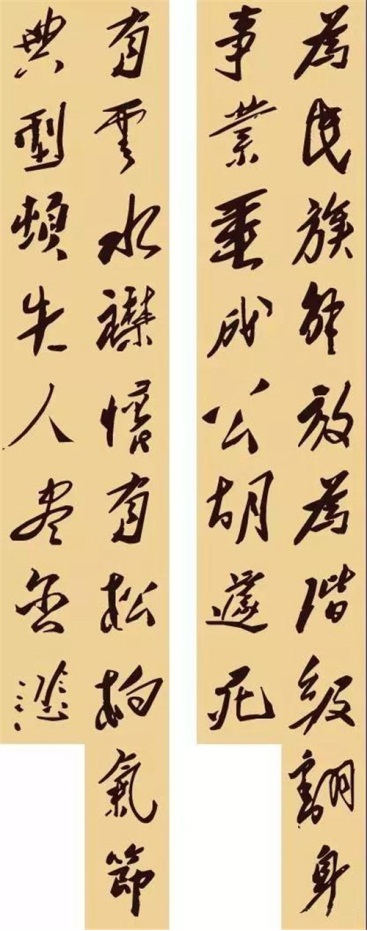 為民族解放為階級翻身
事業垂成公胡遽死
有雲水襟懷有松柏氣節
典型頓失人尽含悲